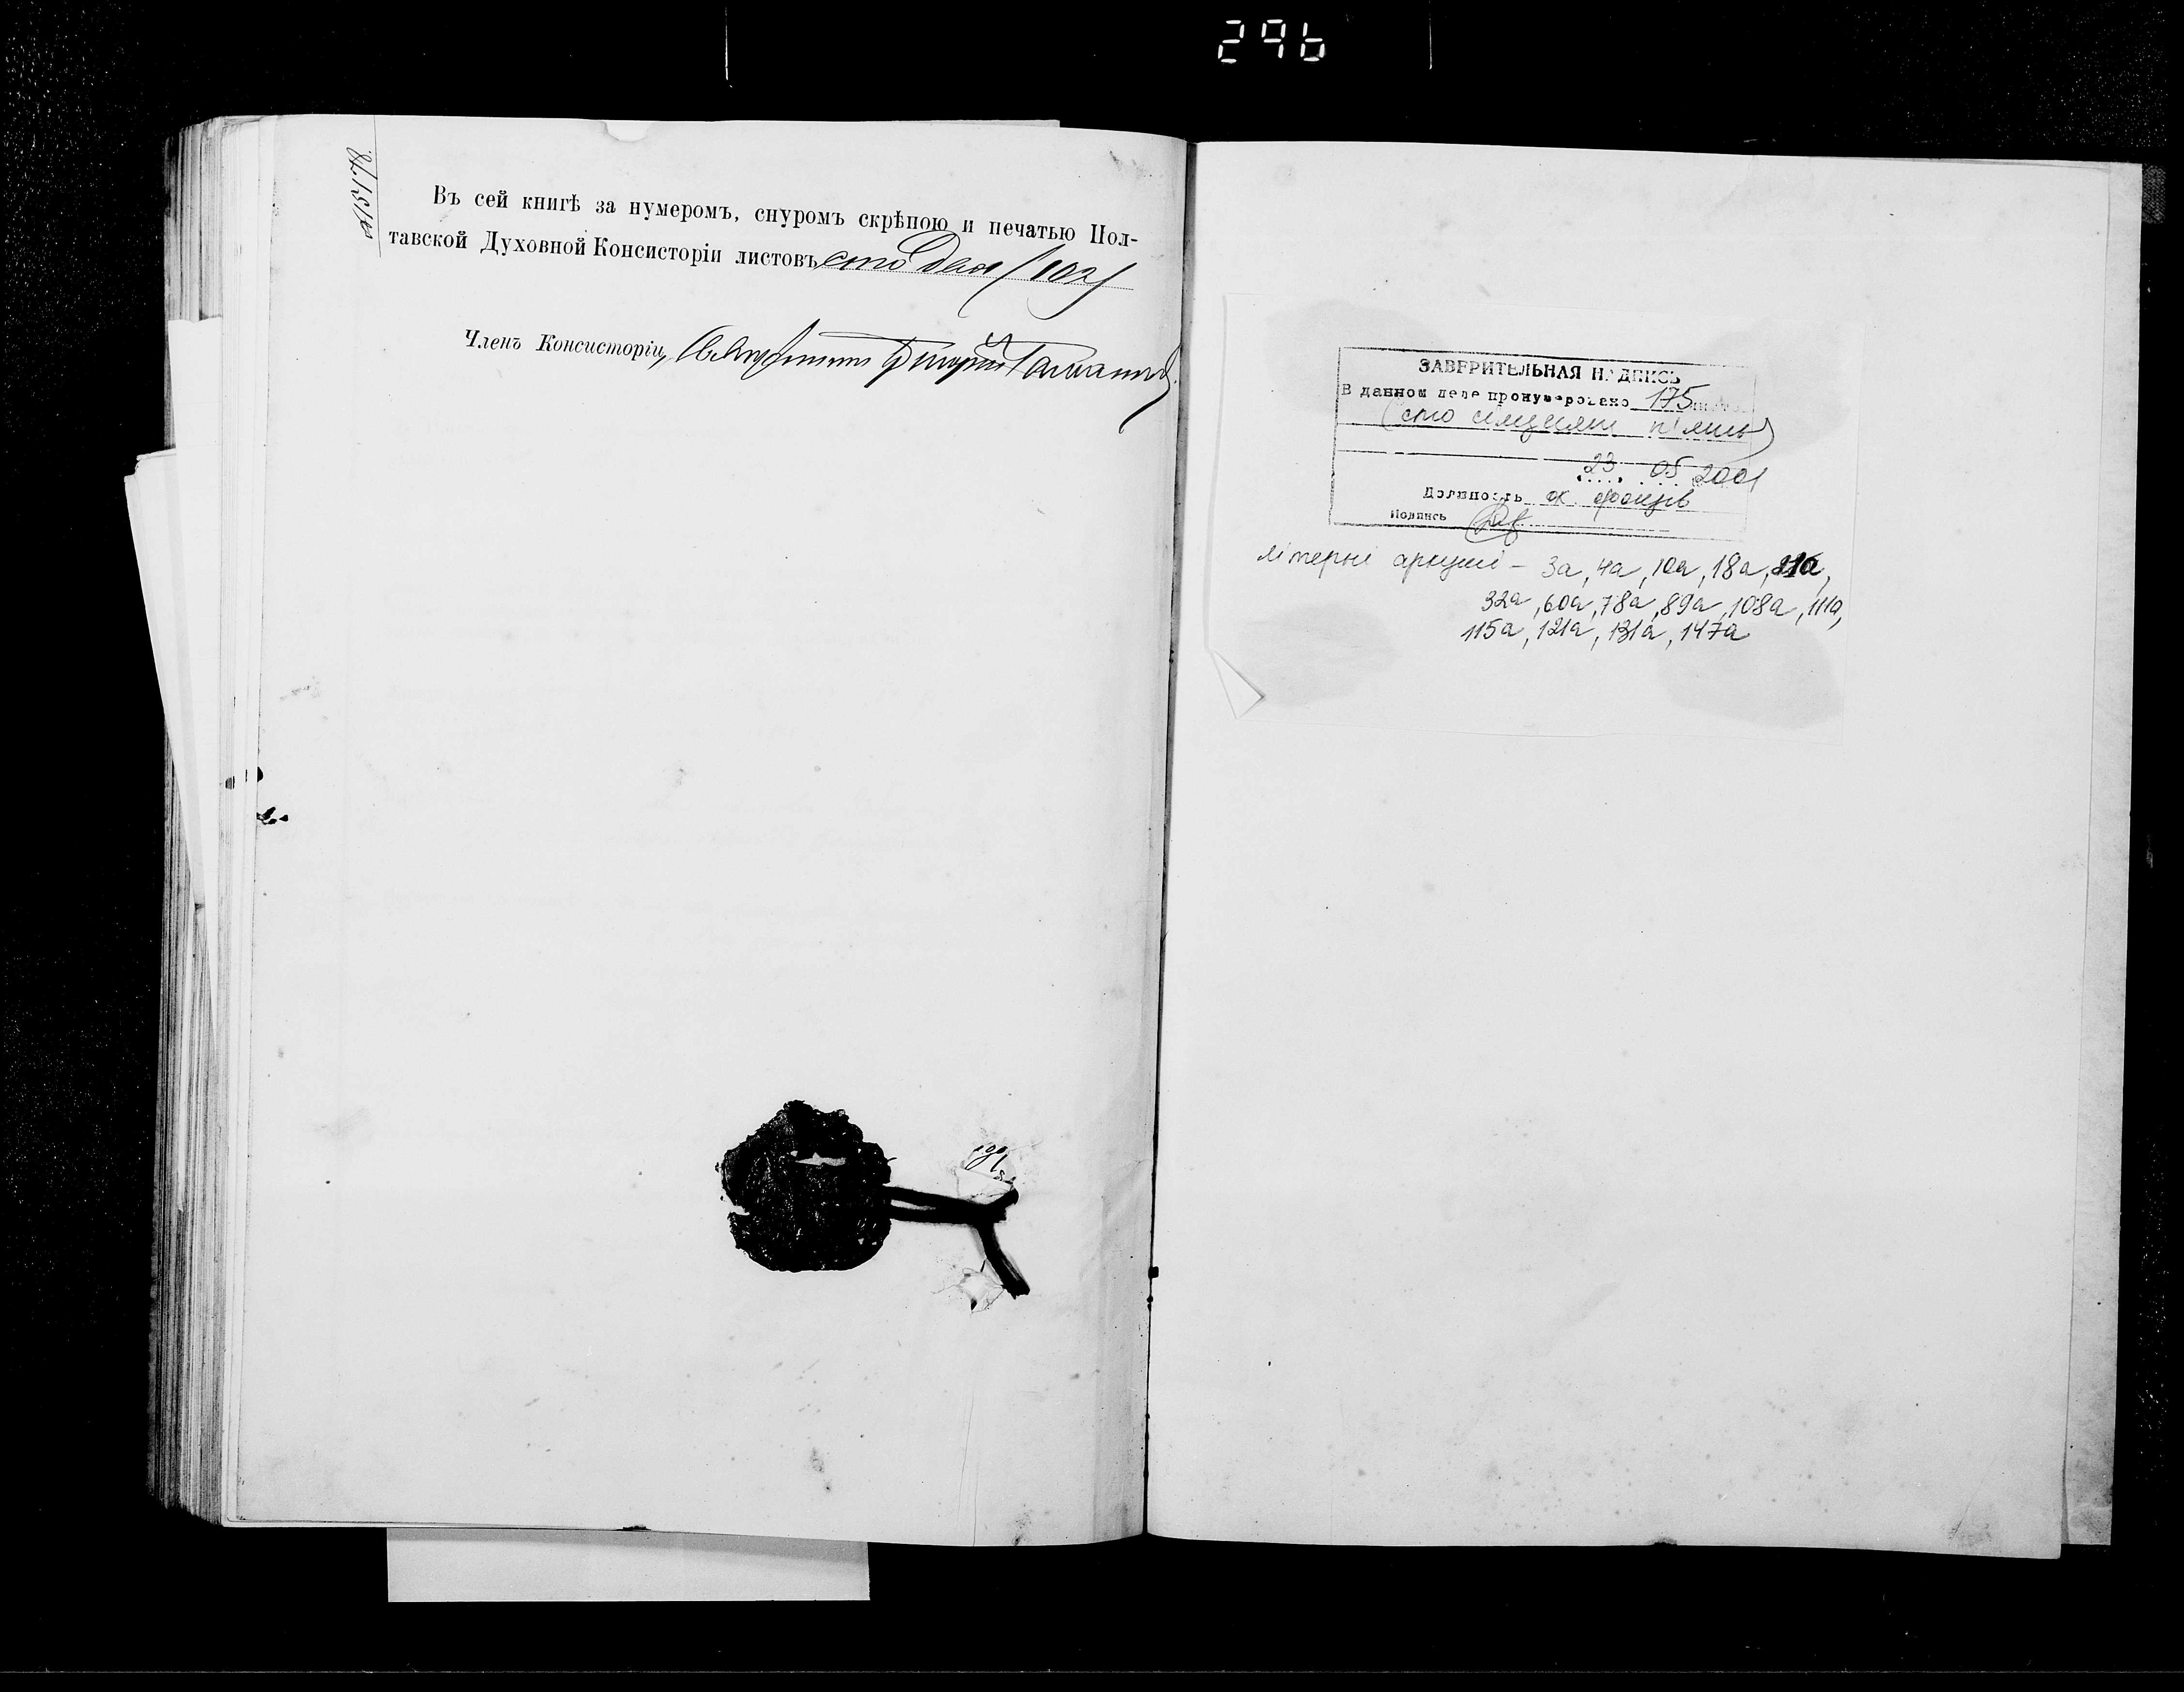 296
Въ сей книгѣ за нумеромъ, снуромъ скрѣпою и печатью Пол-
тавской Духовной Консисторіи листовъ сто два /102/
Членъ Консисторіи,
ЗАВЕРИТЕЛЬНАЯ НАДПИСЬ
В данном деле пронумеровано 175
(сто сімдесят п'ять)
23 05 2001
Должность фондів
Подпись
літерні аркуші – 3а, 4а, 10а, 18а,
32а, 60а, 78а, 89а, 108а, 111а,
115а, 121а, 131а, 147а